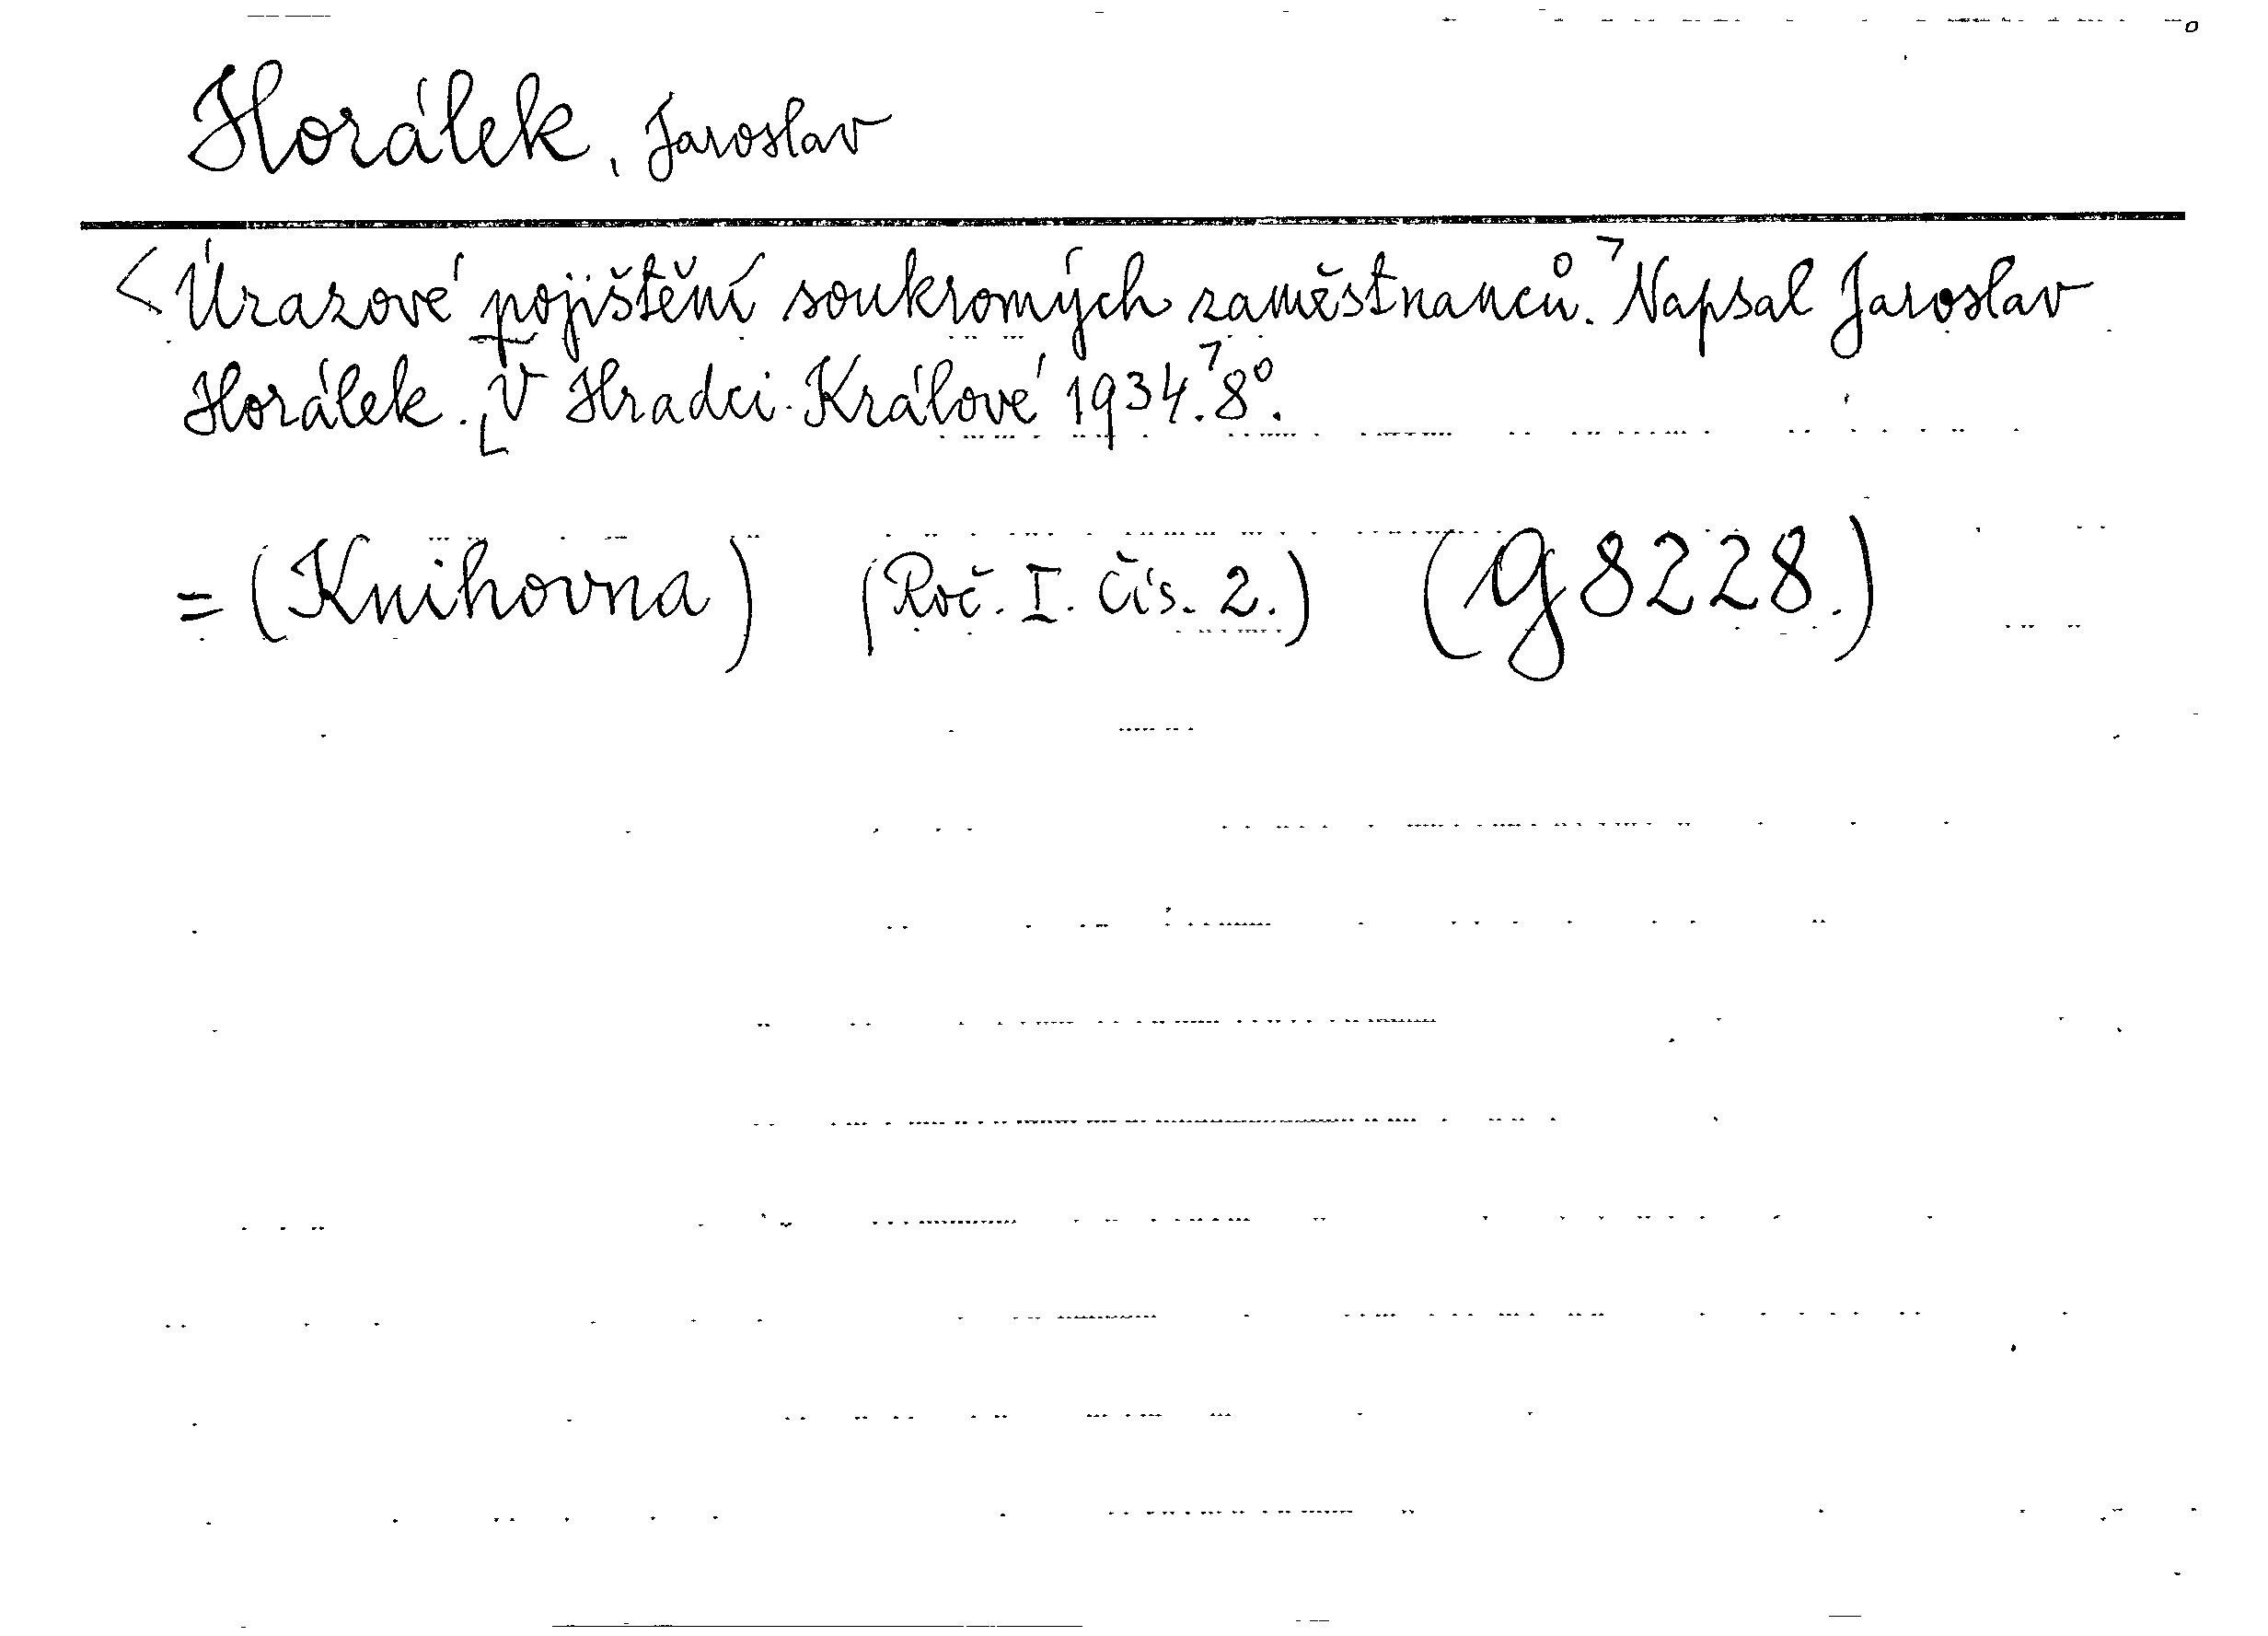 Horálek, Jaroslav
<Úrazové pojištění soukromých zaměstnanců.> Napsal Jaroslav
Horálek. [V Hradci Králové 1934.] 8°.
= (Knihovna) (Roč. I. Čís. 2.) (G 8228.)